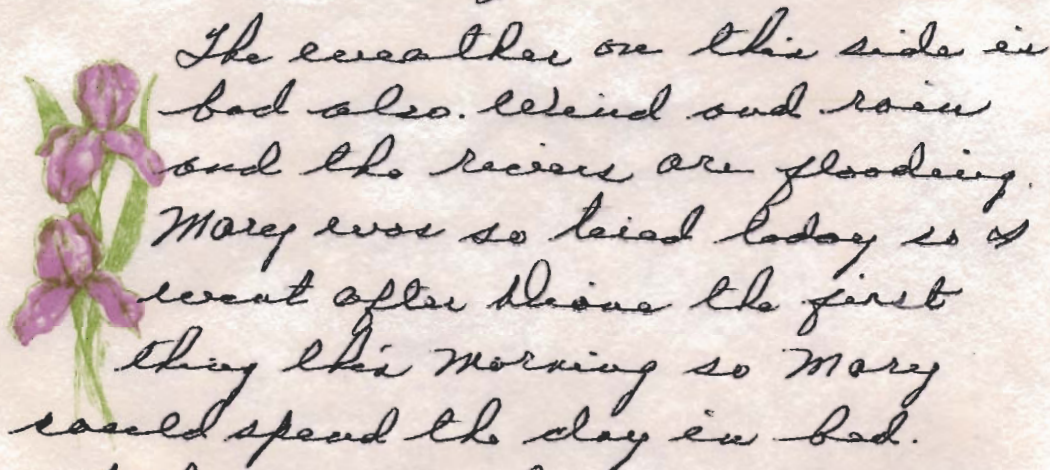 The weather on this side is
bad also. Wind and rain
and the rivers are flooding.
Mary was so tired today so I
went after Diane the first
thing this morning so Mary
could spend the day in bed.